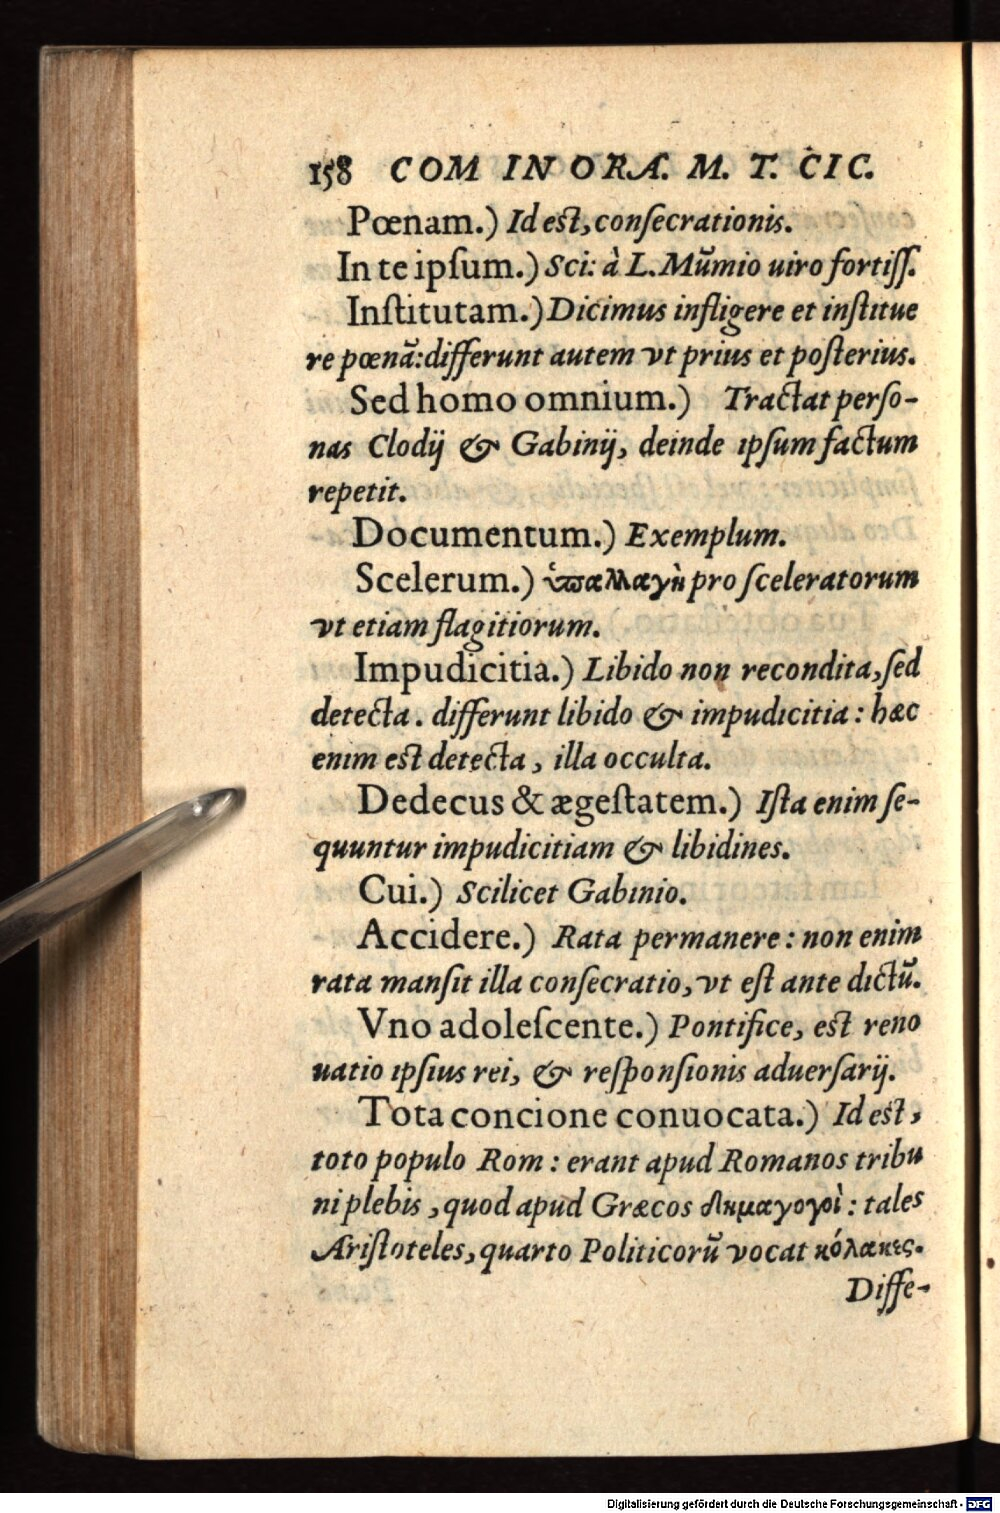 158 COM IN ORA. M. T. CIC.
Pœnam.) Id est, conſecrationis.
In te ipſum.) Sci: à L. Mũmio uiro fortiſſ.
Inſtitutam.) Dicimus infligere et inſtitue
re pœnã: differunt autem vt prius et poſterius.
Sed homo omnium.) Tractat perſo-
nas Clodij & Gabinij, deinde ipſum factum
repetit.
Documentum.) Exemplum.
Scelerum.) ὑπαλλαγὴ pro ſceleratorum
vt etiam flagitiorum.
Impudicitia.) Libido non recondita, ſed
detecta. differunt libido & impudicitia: hæc
enim est detecta, illa occulta.
Dedecus & ægeſtatem.) Iſta enim ſe-
quuntur impudicitiam & libidines.
Cui.) Scilicet Gabinio.
Accidere.) Rata permanere: non enim
rata manſit illa conſecratio, vt eſt ante dictũ.
Vno adoleſcente.) Pontifice, est reno
uatio ipſius rei, & reſponſionis aduerſarij.
Tota concione conuocata.) Id est,
toto populo Rom: erant apud Romanos tribu
ni plebis, quod apud Græcos δημαγογοὶ: tales
Ariſtoteles, quarto Politicorũ vocat κόλακες.
Diffe-
Digitalisierung gefördert durch die Deutsche Forschungsgemeinschaft - DFG